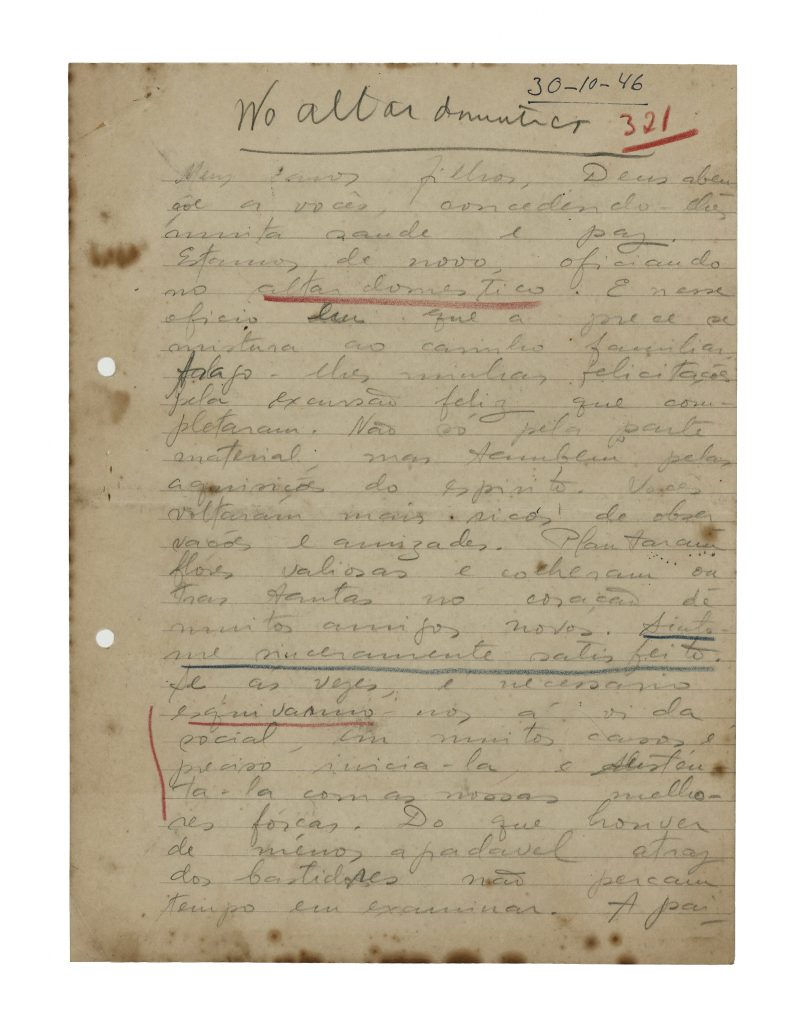 30-10-46
No altar domestico
321
Meus caros filhos, Deus aben
çôe a vocês, concedendo-lhes
muita saude e paz.
Estamos de novo, oficiando
no altar domestico. E nesse
oficio em que a prece se
mistura ao carinho familiar,
trago-lhes minhas felicitações
pela excursão feliz que com-
pletaram. Não só pela parte
material, mas tambem pelas
aquisições do espirito. Vocês
voltaram mais ricos de obser
vações e amizades. Plantaram
flores valiosas e colheram ou
tras tantas no coração de
muitos amigos novos. Sinto-
me sinceramente satisfeito.
Se ás vezes, é necessario
esquivarmo-nos á vida
social, em muitos casos é
preciso inicia-la e susten
ta-la com as nossas melho-
res forças. Do que houver
de menos agradavel atraz
dos bastidores não percam
tempo em examinar. A pai-